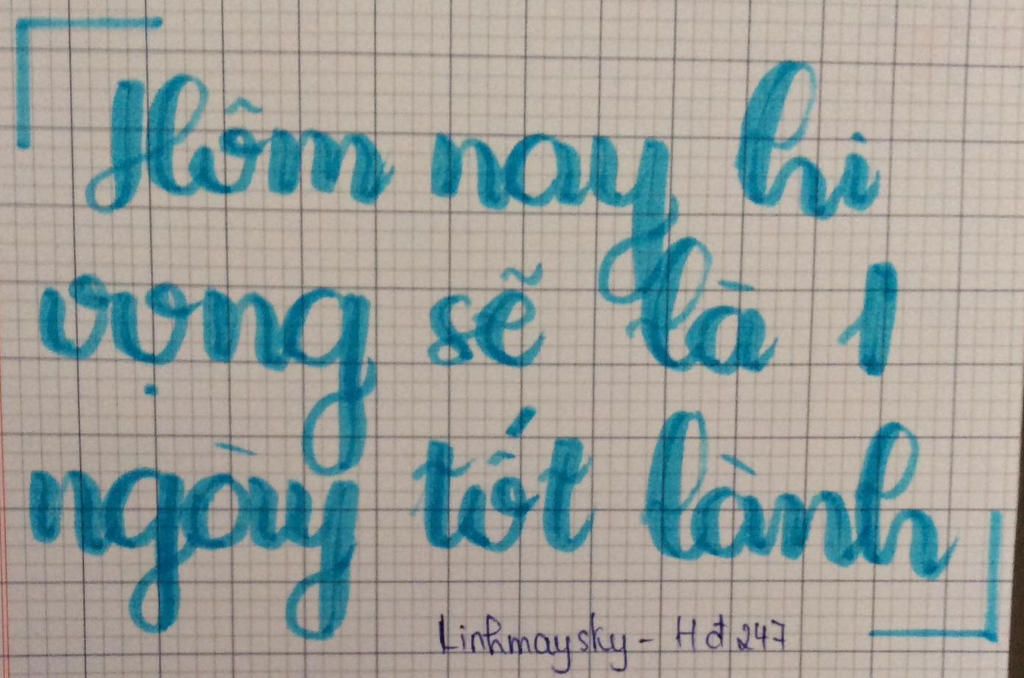 Hôm nay hi
vọng sẽ là 1
ngày tốt lành
Linhmaysky - Hđ247